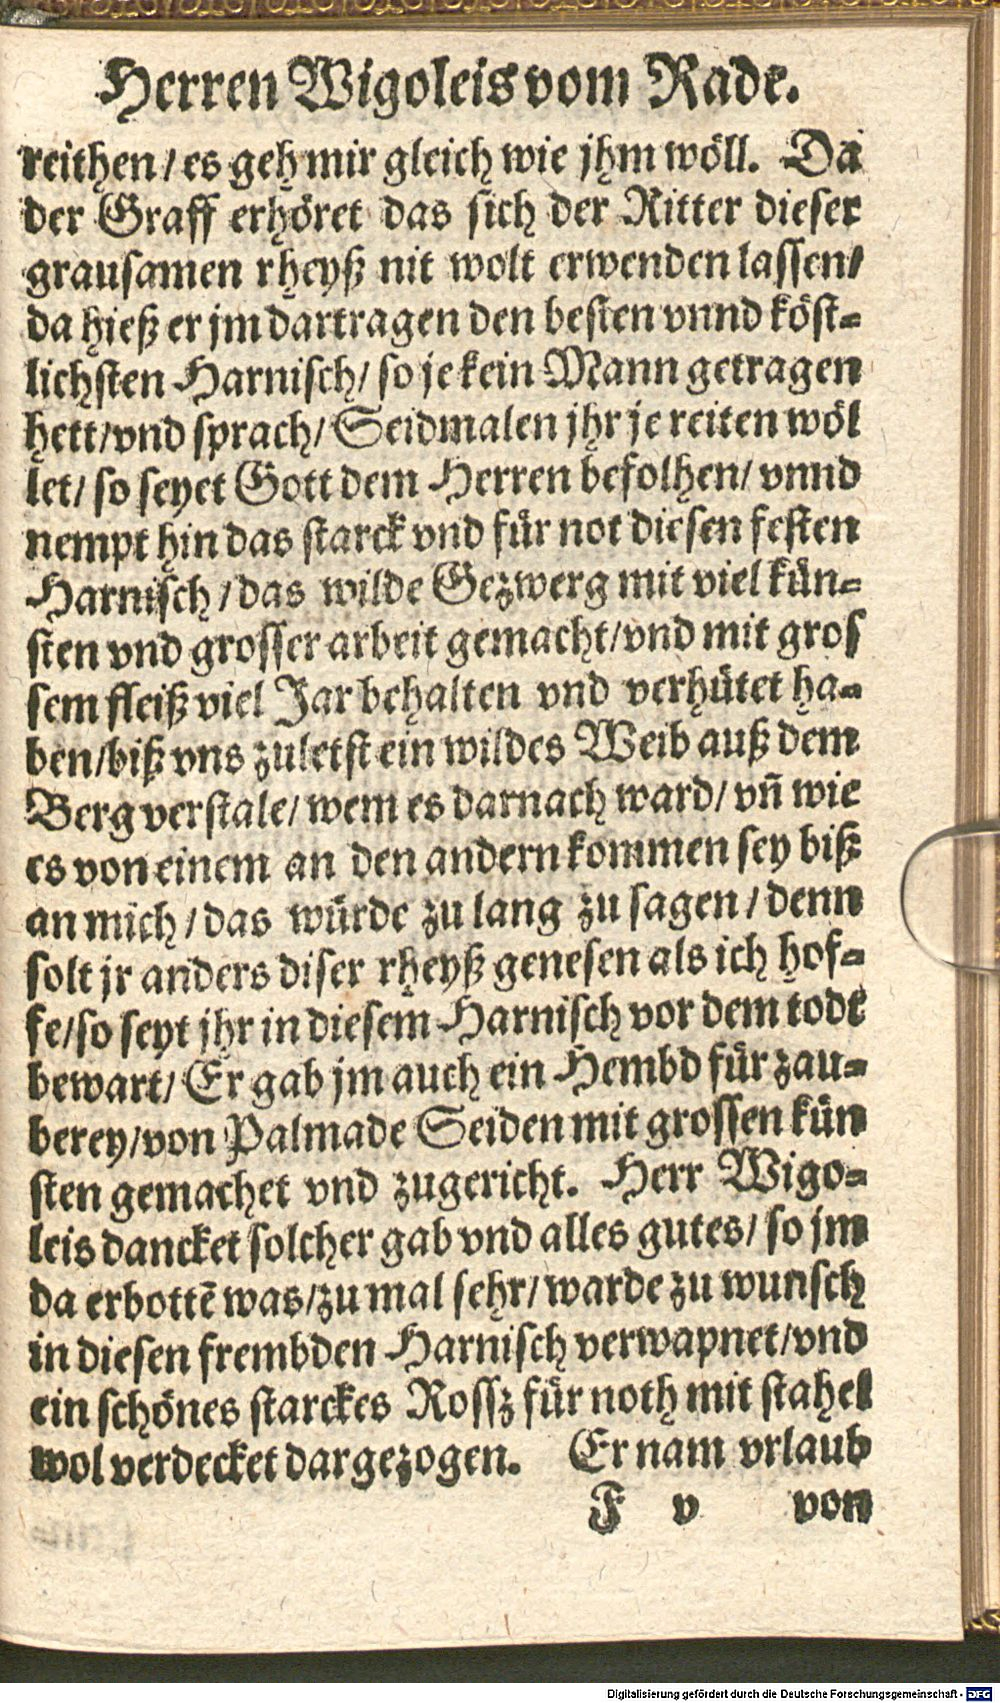 Herren Wigoleis vom Rade.
reithen / es geh mir gleich wie jhm wöll. Da
der Graff erhöret das sich der Ritter dieser
grausamen rheyß nit wolt erwenden lassen/
da hieß er jm dartragen den besten vnnd köst-
lichsten Harnisch/ so je kein Mann getragen
hett/vnd sprach/ Seidmalen jhr je reiten wöl
let/ so seyet Gott dem Herren befolhen/ vnnd
nempt hin das starck vnd für not diesen festen
Harnisch / das wilde Gezwerg mit viel kün-
sten vnd grosser arbeit gemacht/vnd mit gros
sem fleiß viel Jar behalten vnd verhütet ha-
ben/biß vns zuletst ein wildes Weib auß dem
Berg verstale/ wem es darnach ward/ vñ wie
es von einem an den andern kommen sey biß
an mich / das würde zu lang zu sagen / denn
solt jr anders diser rheyß genesen als ich hof-
fe/so seyt jhr in diesem Harnisch vor dem todt
bewart/ Er gab jm auch ein Hembd für zau-
berey/von Palmade Seiden mit grossen kün
sten gemachet vnd zugericht. Herr Wigo-
leis dancket solcher gab vnd alles gutes/ so jm
da erbottẽ was/zu mal sehr/ warde zu wunsch
in diesen frembden Harnisch verwapnet/vnd
ein schönes starckes Rossz für noth mit stahel
wol verdecket dargezogen. Er nam vrlaub
F v von
Digitalisierung gefördert durch die Deutsche Forschungsgemeinschaft - DFG